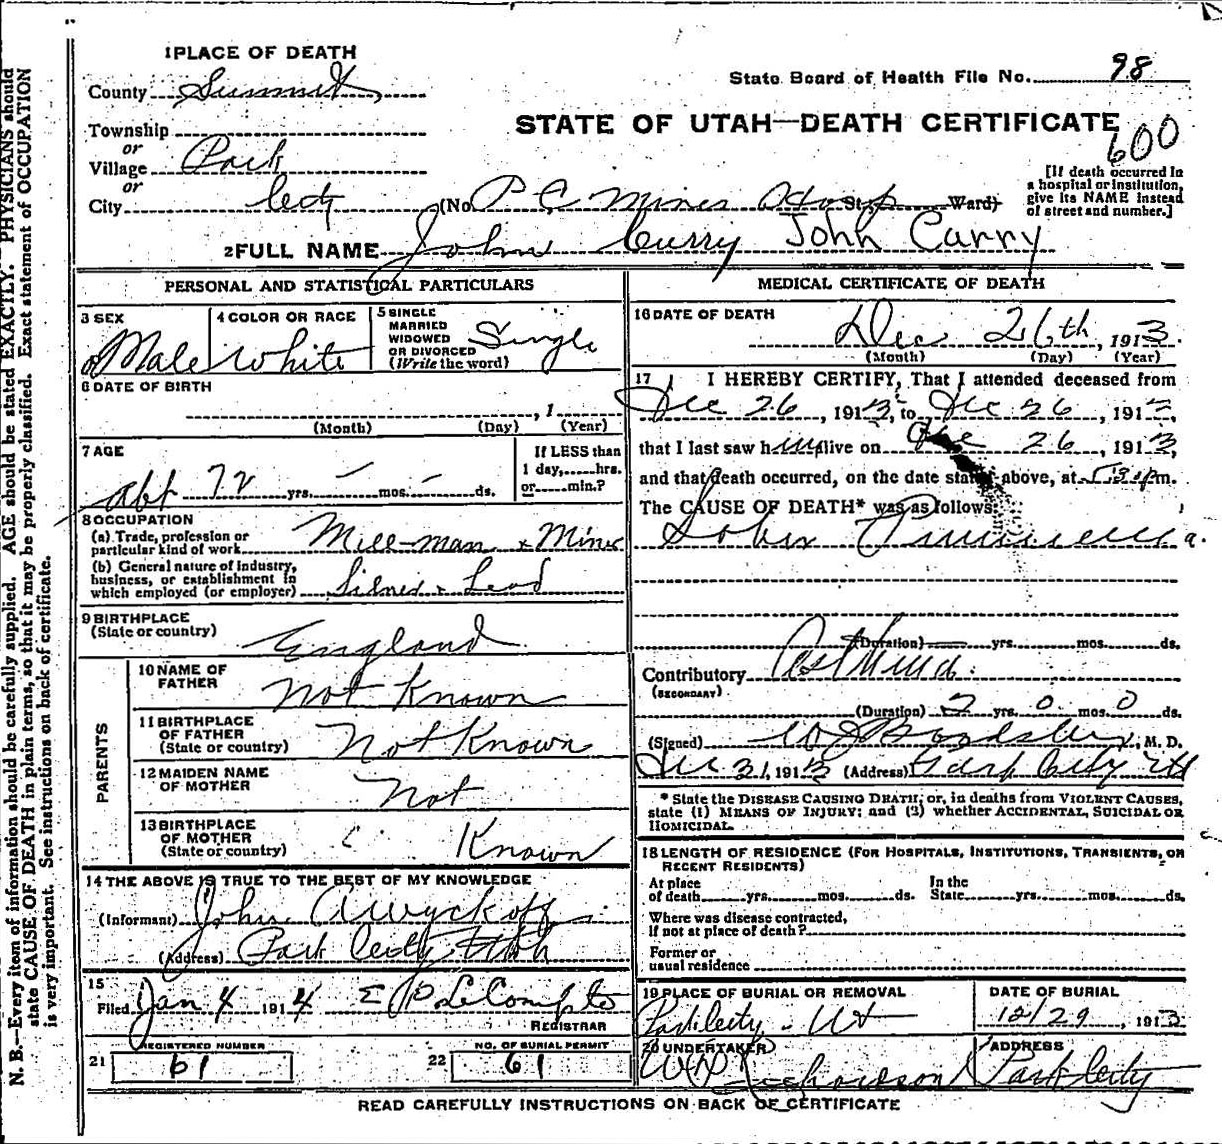 1 PLACE OF DEATH
County Summit
State Board of Health File No. 98
STATE OF UTAH—DEATH CERTIFICATE
600
Township
or
Village Park
or
City City (No. P C Mines Hosp St., Ward)
[If death occurred in
a hospital or institution,
give its NAME instead
of street and number.]
2 FULL NAME John Curry John Curry
PERSONAL AND STATISTICAL PARTICULARS
3 SEX
Male
4 COLOR OR RACE
White
5 SINGLE
MARRIED
WIDOWED
OR DIVORCED
(Write the word)
Single
6 DATE OF BIRTH
, 1
(Month) (Day) (Year)
7 AGE
abt 72 yrs. — mos. — ds.
If LESS than
1 day, hrs.
or min.?
8 OCCUPATION
(a) Trade, profession or
particular kind of work Mill-man & Miner
(b) General nature of industry,
business, or establishment in
which employed (or employer) Silver & Lead
9 BIRTHPLACE
(State or country)
England
PARENTS
10 NAME OF
FATHER
Not Known
11 BIRTHPLACE
OF FATHER
(State or country)
Not Known
12 MAIDEN NAME
OF MOTHER
Not
13 BIRTHPLACE
OF MOTHER
(State or country)
Known
14 THE ABOVE IS TRUE TO THE BEST OF MY KNOWLEDGE
(Informant) John A Wyckoff
(Address) Park City Utah
15
Filed Jan 4 1914 E P LeCompte
REGISTRAR
REGISTERED NUMBER
21 61
NO. OF BURIAL PERMIT
22 61
MEDICAL CERTIFICATE OF DEATH
16 DATE OF DEATH
Dec 26th, 1913.
(Month) (Day) (Year)
17 I HEREBY CERTIFY, That I attended deceased from
Dec 26, 1913, to Dec 26, 1913,
that I last saw him alive on Dec 26, 1913,
and that death occurred, on the date stated above, at m.
The CAUSE OF DEATH* was as follows:
Lobar Pneumonia.
(Duration) yrs. mos. ds.
Contributory Asthma.
(SECONDARY)
(Duration) 2 yrs. 0 mos. 0 ds.
(Signed) W J Bardsley, M. D.
Dec 31, 1913 (Address) Park City Ut
* State the DISEASE CAUSING DEATH; or, in deaths from VIOLENT CAUSES,
state (1) MEANS OF INJURY; and (2) whether ACCIDENTAL, SUICIDAL OR
HOMICIDAL.
18 LENGTH OF RESIDENCE (FOR HOSPITALS, INSTITUTIONS, TRANSIENTS, OR
RECENT RESIDENTS)
At place
of death yrs. mos. ds.
In the
State yrs. mos. ds.
Where was disease contracted,
if not at place of death?
Former or
usual residence
19 PLACE OF BURIAL OR REMOVAL
Park City - Ut
DATE OF BURIAL
12/29, 1913
20 UNDERTAKER
Richardson
ADDRESS
Park City
READ CAREFULLY INSTRUCTIONS ON BACK OF CERTIFICATE
N. B.—Every item of information should be carefully supplied. AGE should be stated EXACTLY. PHYSICIANS should
state CAUSE OF DEATH in plain terms, so that it may be properly classified. Exact statement of OCCUPATION
is very important. See instructions on back of certificate.